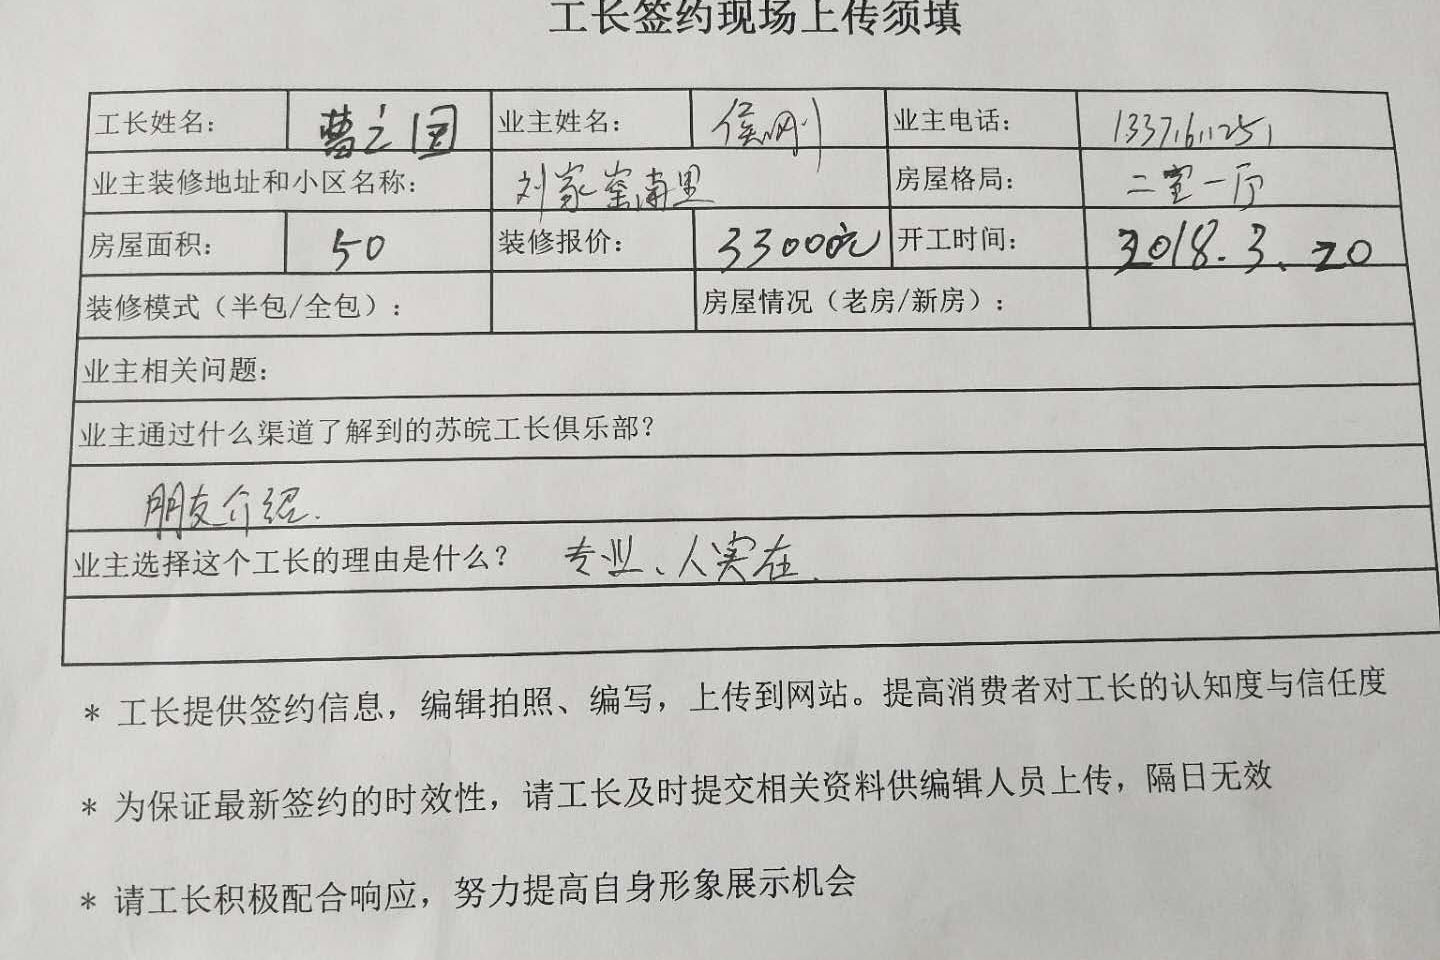 工长签约现场上传须填
工长姓名： 曹之国 业主姓名： 侯刚 业主电话：
业主装修地址和小区名称： 刘家窑南里 房屋格局： 二室一厅
房屋面积： 50 装修报价： 33000元 开工时间： 2018.3.20
装修模式（半包/全包）： 房屋情况（老房/新房）：
业主相关问题：
业主通过什么渠道了解到的苏皖工长俱乐部？
朋友介绍.
业主选择这个工长的理由是什么？ 专业、人实在.
* 工长提供签约信息，编辑拍照、编写，上传到网站。提高消费者对工长的认知度与信任度
* 为保证最新签约的时效性，请工长及时提交相关资料供编辑人员上传，隔日无效
* 请工长积极配合响应，努力提高自身形象展示机会